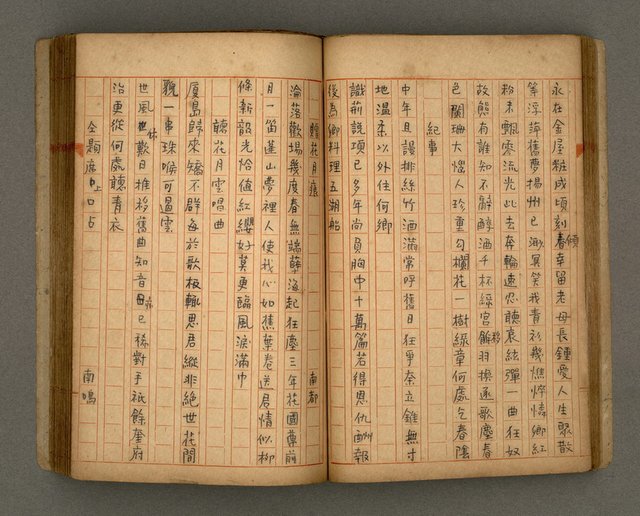 永在金屋粧成頃刻春傾幸留老母長鍾愛人生聚散
等浮萍舊夢揚州已渺冥笑我青衫幾憔悴憐鄉紅
粉未飄零流光此去奔輪速忍聽哀絃彈一曲狂奴
故態有誰知不辭醇酒千杯綠宮餘羽換逐歌塵春
色闌珊大惱人珍重勾欄花一樹綠章何處乞春陰
紀事
中年且謾排絲竹酒滿常呼舊日狂爭奈立錐無寸
地溫柔以外住何鄉
識荊說項已多年尚負胸中十萬篇若得恩仇酬報
後為鄉料理五湖船
南都
淪落歡場幾度春無端孽海起狂塵三年花國尊前
月一笛蓬山夢裡人使我心如蕉葉卷送君情似柳
條新韶光恰值紅纓好莫更臨風淚滿巾
聽花月雲唱曲
廈島歸來矯不群每於歌板輒思君縱非絕世花間
貌一串珠喉可遏雲
世風休歎日推移舊曲知音已稀對手祇餘奎府
治更從何處聽青衣
仝題席上口占
南鳴